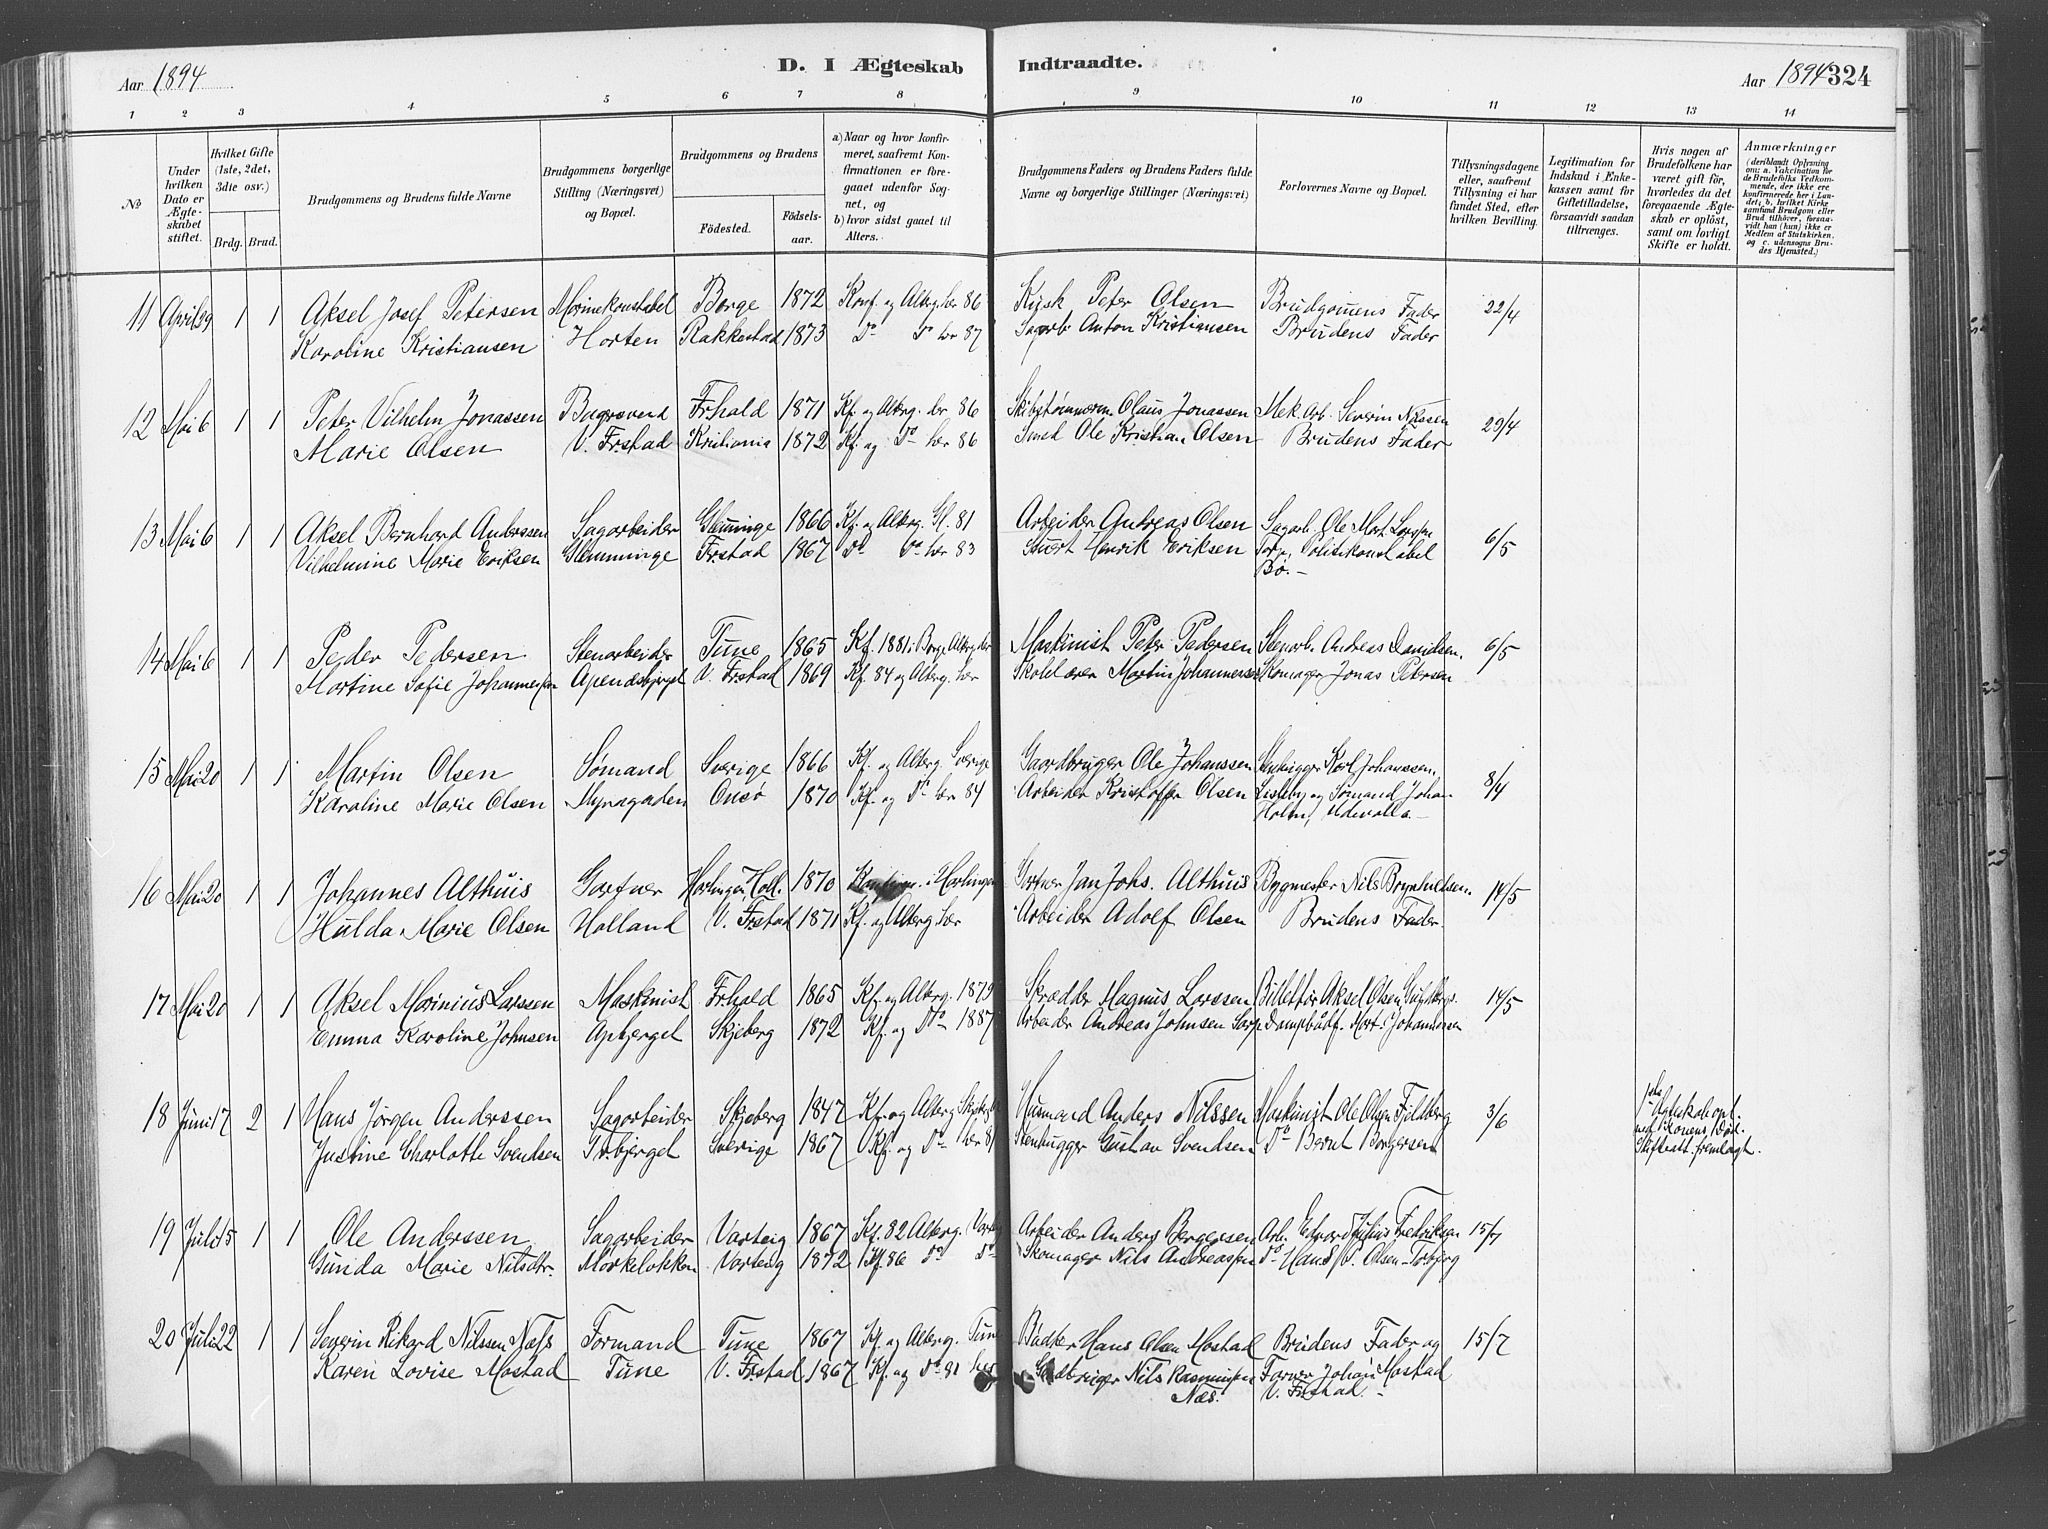 Aar 1894
D. I Ægteskab Indtraadte.
Aar 1894 324
1 2 3 4 5 6 7 8 9 10 11 12 13 14
No
Under hvilken Dato er Ægteskabet stiftet.
Hvilket Gifte (1ste, 2det, 3die osv.)
Brdg. Brud.
Brudgommens og Brudens fulde Navne
Brudgommens borgerlige Stilling (Næringsvei) og Bopæl.
Brudgommens og Brudens
Fødested. Fødselsaar.
a) Naar og hvor konfirmeret, saafremt Konfirmationen er foregaaet udenfor Sognet, og
b) hvor sidst gaaet til Alters.
Brudgommens Faders og Brudens Faders fulde Navne og borgerlige Stillinger (Næringsvei)
Forlovernes Navne og Bopæl.
Tillysningsdagene eller, saafremt Tillysning ei har fundet Sted, efter hvilken Bevilling.
Legitimation for Indskud i Enkekassen samt for Giftetilladelse, forsaavidt saadan tiltrænges.
Hvis nogen af Brudefolkene har været gift før, hvorledes da det foregaaende Ægteskab er opløst, samt om lovligt Skifte er holdt.
Anmærkninger
(deriblandt Oplysning om: a. Vakcination for de Brudefolks Vedkommende, der ikke ere konfirmerede her i Landet; b. hvilket Kirkesamfund Brudgom eller Brud tilhører, forsaavidt han (hun) ikke er Medlem af Statskirken, og c. udensogns Brudes Hjemsted.)
11 April 29 1 1 Aksel Josef Petersen Marinekonstabel Borge 1872 Konf. og Alterg. her 86 Kusk Peter Olsen Brudgomens Fader 22/4
Karoline Kristiansen Horten Rakkestad 1873 Do Do her 87 Sagarb. Anton Kristiansen Brudens Fader
12 Mai 6 1 1 Peter Vilhelm Jonassen Bagersvend Frhald 1871 Kf. og Alterg. her 86 Skibstømmerm. Olaus Jonassen Mek. Arb. Severin Nilssen 29/4
Marie Olsen V. Frstad Kristiania 1872 Kf. og Do her 86 Smed Ole Kristian Olsen Brudens Fader
13 Mai 6 1 1 Aksel Bernhard Anderssen Sagarbeider Glemminge 1866 Kf. og Alterg. Gl. 81 Arbeider Andreas Olsen Sagarb. Ole Mart. Larssen 6/5
Vilhelmine Marie Eriksen Glemminge Frstad 1867 Do Do her 83 Stuert Henrik Eriksen Torp, Politikonstabel
Bø.
14 Mai 6 1 1 Peder Pedersen Stenarbeider Tune 1865 Kf. 1881 i Borge, Alterg. her Maskinist Peter Pedersen Stenarb. Andreas Davidsen. 6/5
Martine Sofie Johannessen Apendsbjerget V. Frstad 1869 Kf. 84 og Alterg. her Skolelærer Martin Johannessen Skomager Jonas Petersen
15 Mai 20 1 1 Martin Olsen Sømand Sverige 1866 Kf. og Alterg. Sverige Gaardbruger Ole Johanssen Stenhugger Karl Johanssen, 8/4
Karoline Marie Olsen Myragaden Onsø 1870 Kf. og Do her 84 Arbeider Kristoffer Olsen Lisleby og Sømand Johan
Holm, Udevalla.
16 Mai 20 1 1 Johannes Althuis Gartner Harlingen, Holl. 1870 i Harlingen Gartner Jan Johs. Althuis Bygmester Nils Brynhildsen. 14/5
Hulda Marie Olsen Holland V. Frstad 1871 Kf. og Alterg. her Arbeider Adolf Olsen Brudens Fader
17 Mai 20 1 1 Aksel Marinius Larssen Maskinist Frhald 1865 Kf. og Alterg. 1879 Skrædder Magnus Larssen Billettør Aksel Olsen 14/5
Emma Karoline Johnsen Apbjerget Skjeberg 1872 Kf. og Do 1887 Arbeider Andreas Johnsen Sarp Dampbådf. Mart. Johannessen
18 Juni 17 2 1 Hans Jørgen Anderssen Sagarbeider Skjeberg 1847 Kf. og Alterg. Skjeberg Husmand Anders Nilssen Maskinist Ole Olsen Fjeldberg 3/6 1ste Ægteskab opl. ved Konens Død. Skifteatt. fremlagt.
Justine Charlotte Svendsen Sverige 1867 Kf. og Do her 81 Stenhugger Gustav Svendsen Do Bernt Borgersen
19 Juli 15 1 1 Ole Anderssen Sagarbeider Varteig 1867 Kf. 82 Alterg. Varteig Arbeider Anders Bergersen Arb. Edvard Julius Fredriksen 15/7
Gunda Marie Nilsdtr. Mørkeløkken Varteig 1872 Kf. 86 Do Do Skomager Nils Andreassen Do Hans P. Olsen
20 Juli 22 1 1 Severin Rikard Nilssen Næss Formand Tune 1867 Kf. og Alterg. Tune Bødker Hans Olsen Mostad Brudens Fader og 15/7
Karen Lovise Mostad Tune V. Frstad 1867 Kf. og Do 81 her Gaardbruger Nils Rasmussen Farver Johan Mostad
Næs. V. Frstad.